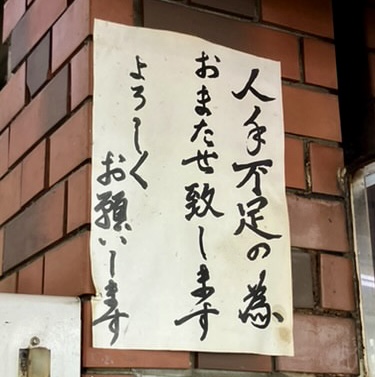 人手不足の為
おまたせ致します
よろしく
お願いします